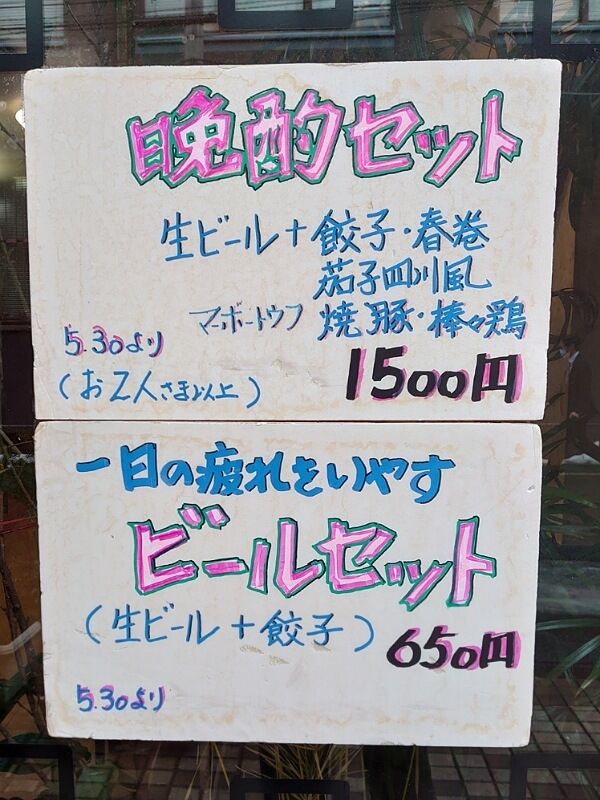 晩酌セット
生ビール+餃子・春巻
茄子四川風
マーボートウフ 焼豚・棒々鶏
5.30より
(お2人さま以上)
1500円
一日の疲れをいやす
ビールセット
(生ビール+餃子)
650円
5.30より